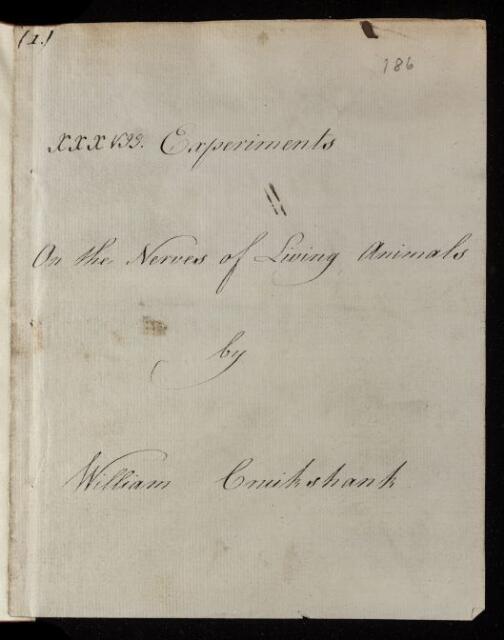 (1.)
186
XXXVII. Experiments
On the Nerves of Living Animals
by
William Cruikshank